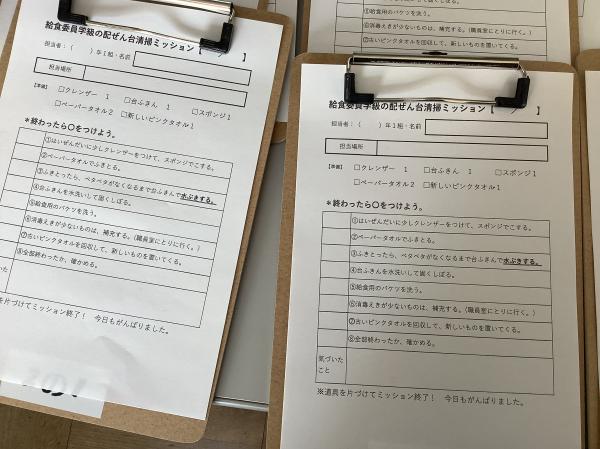 給食委員学級の配ぜん台清掃ミッション【 / 】
担当者：（ ）年１組・名前
担当場所
【準備】 □クレンザー １ □台ふきん １ □スポンジ１
□ペーパータオル２ □新しいピンクタオル１
＊終わったら〇をつけよう。
①はいぜんだいに少しクレンザーをつけて、スポンジでこする。
②ペーパータオルでふきとる。
③ふきとったら、ベタベタがなくなるまで台ふきんで水ぶきする。
④台ふきんを水洗いして固くしぼる。
⑤給食用のバケツを洗う。
⑥消毒えきが少ないものは、補充する。（職員室にとりに行く。）
⑦古いピンクタオルを回収して、新しいものを置いてくる。
⑧全部終わったか、確かめる。
いた
を片づけてミッション終了！ 今日もがんばりました。
⑤給食用のバケツを洗う。
⑥消毒えきが少ないものは、補充する。（職員室にとりに行く。）
⑦古いピンクタオルを回収して、新しいものを置いてくる。
給食委員学級の配ぜん台清掃ミッション【 / 】
担当者：（ ）年１組・名前
担当場所
【準備】 □クレンザー １ □台ふきん １ □スポンジ１
□ペーパータオル２ □新しいピンクタオル１
＊終わったら〇をつけよう。
①はいぜんだいに少しクレンザーをつけて、スポンジでこする。
②ペーパータオルでふきとる。
③ふきとったら、ベタベタがなくなるまで台ふきんで水ぶきする。
④台ふきんを水洗いして固くしぼる。
⑤給食用のバケツを洗う。
⑥消毒えきが少ないものは、補充する。（職員室にとりに行く。）
⑦古いピンクタオルを回収して、新しいものを置いてくる。
⑧全部終わったか、確かめる。
気づいた
こと
※道具を片づけてミッション終了！ 今日もがんばりました。